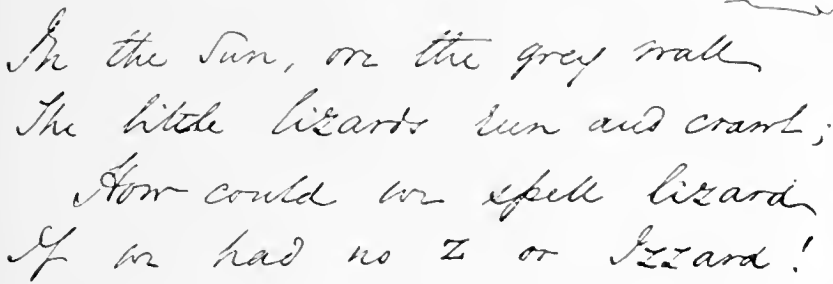 In the Sun, on the grey wall
The little lizards run and crawl;
How could we spell lizard
If we had no Z or Izzard!